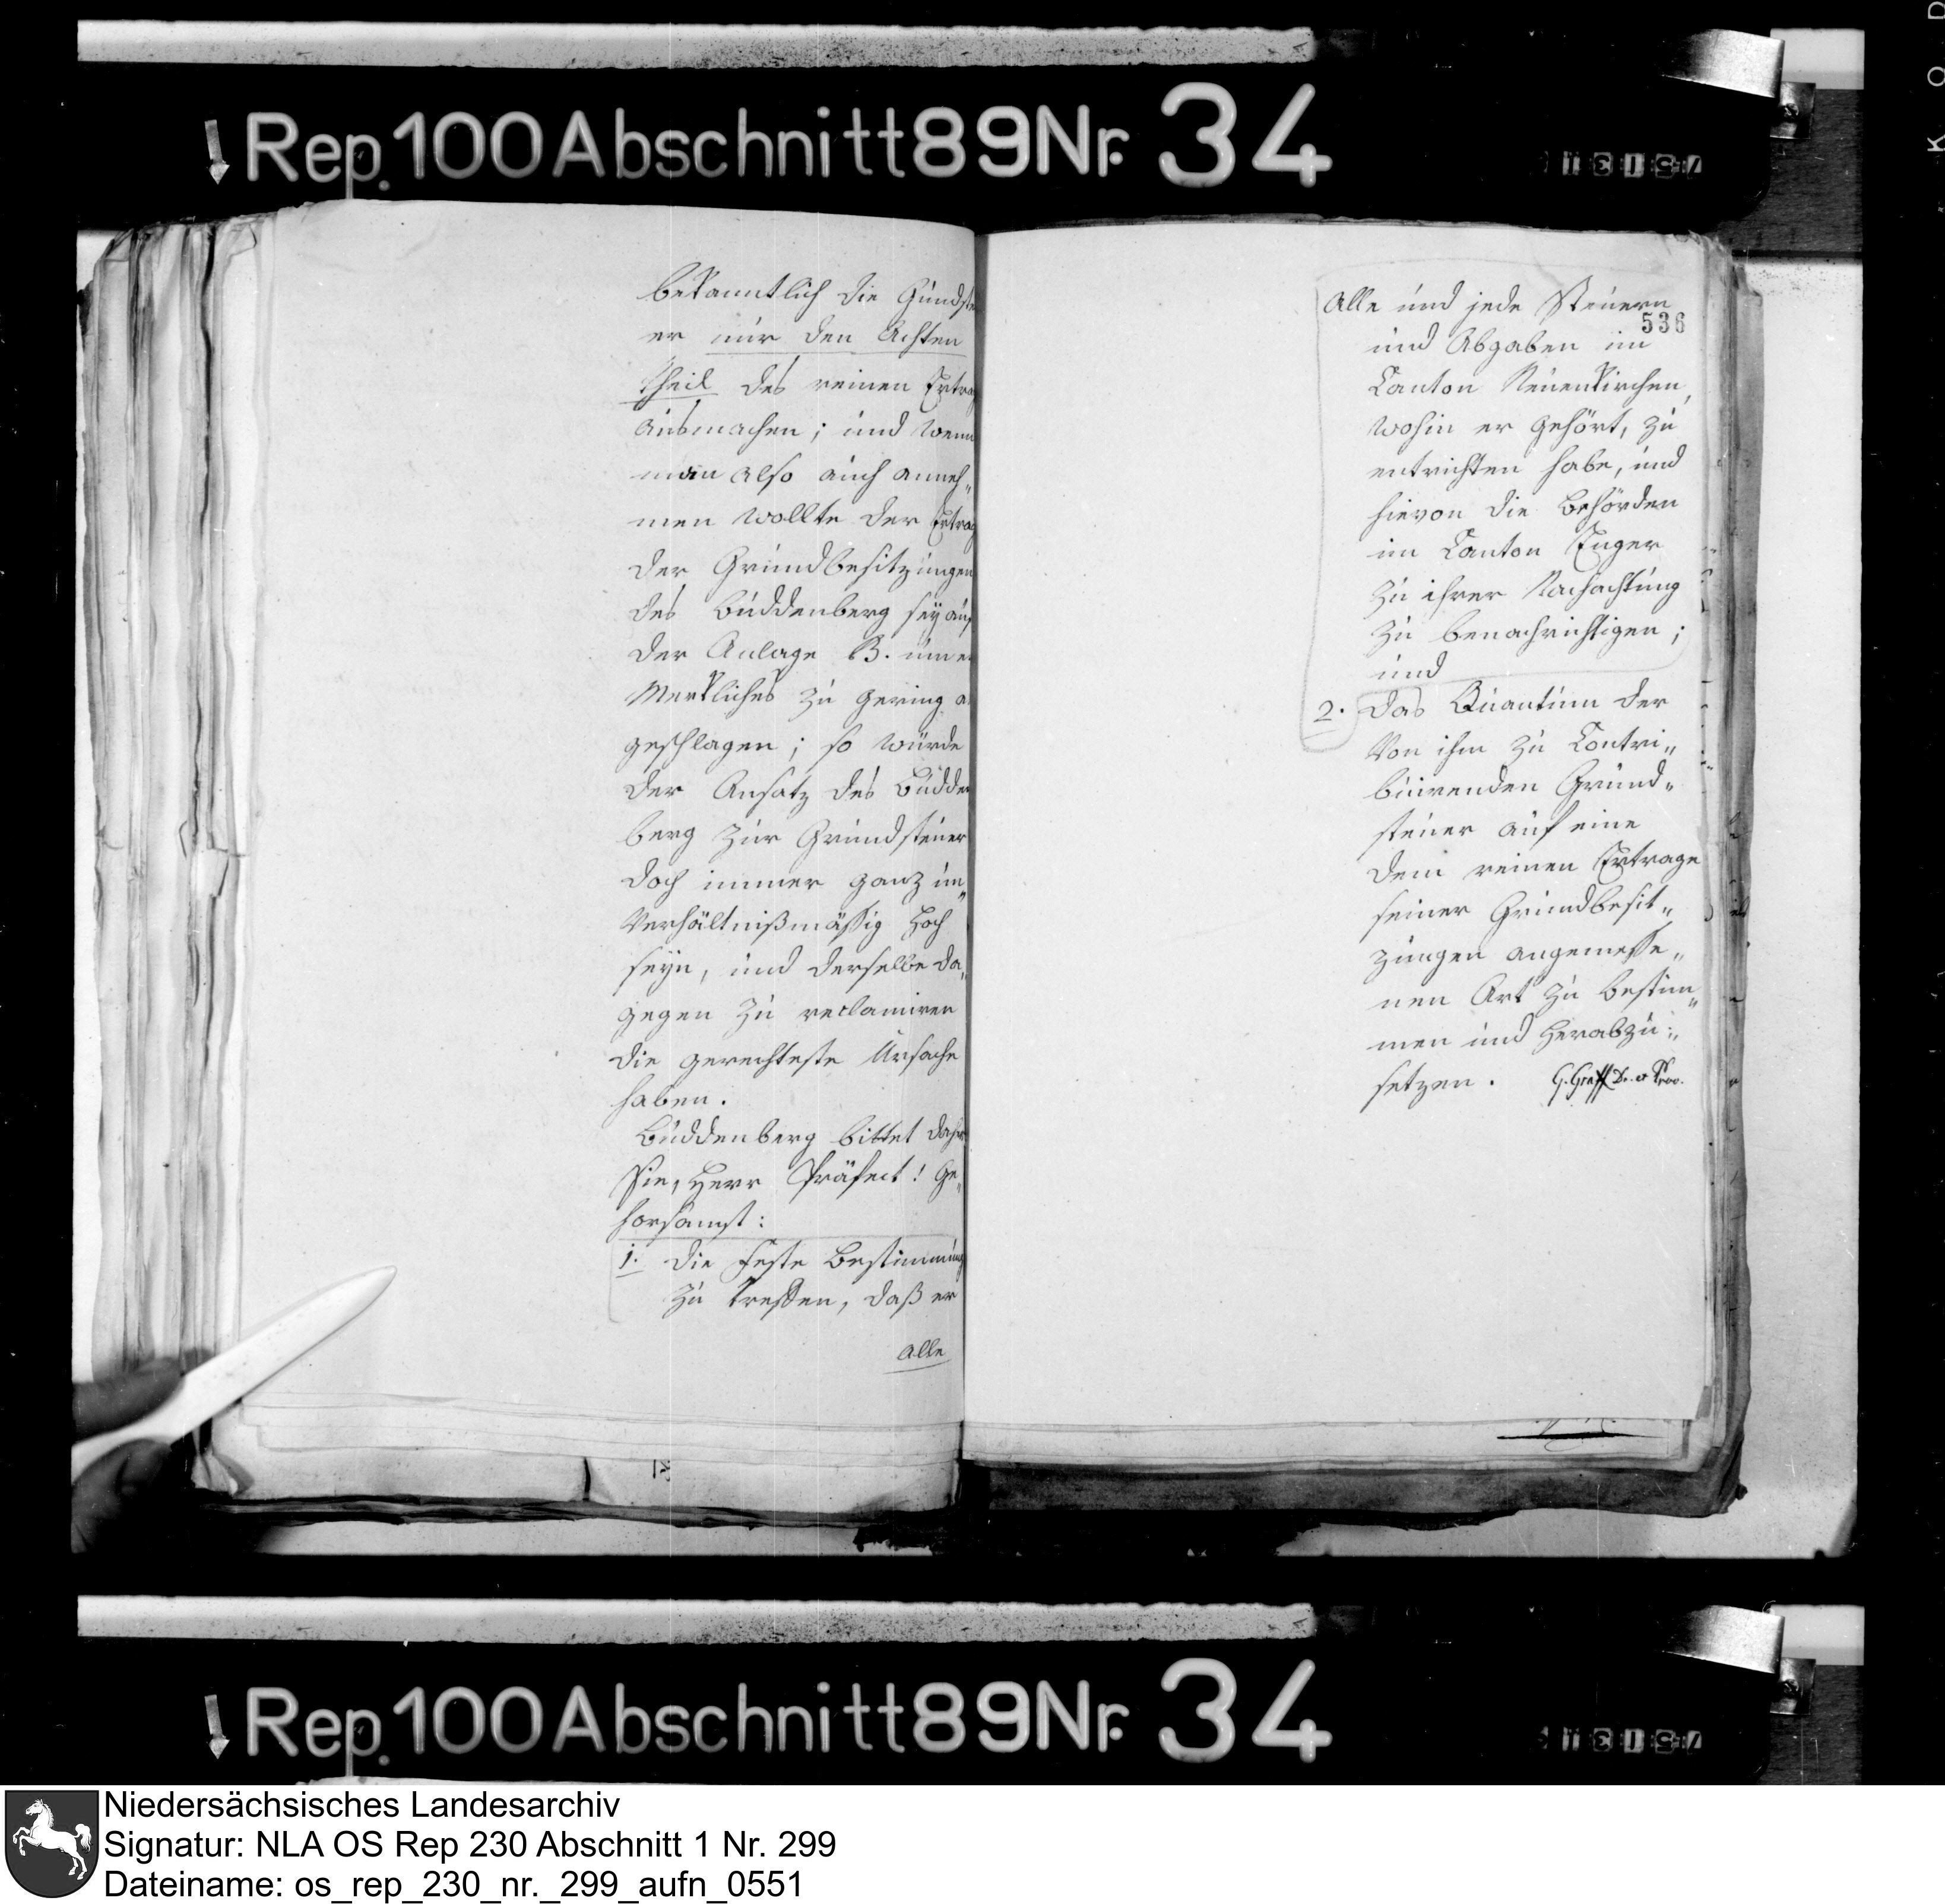 Rep. 100 Abschnitt 89 Nr. 34
bekanntlich die Gundste
er nur den Achten
Theil des reinen Ertrag
ausmachen; und wenn
man also auch anneh„
men wollte der Ertrag
der Grundbesitzungen
des Buddenberg sey auf
der Anlage B. um e
Merkliches zu gering a
geschlagen; so würde
der Ansatz des Budden
berg zur Grundsteuer
doch immer ganz un„
verhältnißmäßig hoch
seyn, und derselbe da„
gegen zu reclamiren
die gerechteste Ursache
haben.
Buddenberg bittet daher
Sie, Herr Präfect! Ge„
horsamst:
1. die feste Bestimmung
zu treffen, daß er
alle
536
Alle und jede Steuern
und Abgaben im
Canton Neuenkirchen,
wohin er gehört, zu
entrichten habe, und
hievon die Behörden
im Canton Enger
zu ihrer Nachachtung
zu benachrichtigen;
und
2. das Quantum der
von ihm zu Contri„
buirenden Grund„
steuer auf eine
dem reinen Ertrage
seiner Grundbesit„
zungen angemesse„
nen Art zu bestim„
men und herabzu„
setzen. G. Graff Dr. et Proc.
Rep. 100 Abschnitt 89 Nr. 34
Niedersächsisches Landesarchiv
Signatur: NLA OS Rep 230 Abschnitt 1 Nr. 299
Dateiname: os_rep_230_nr._299_aufn_0551